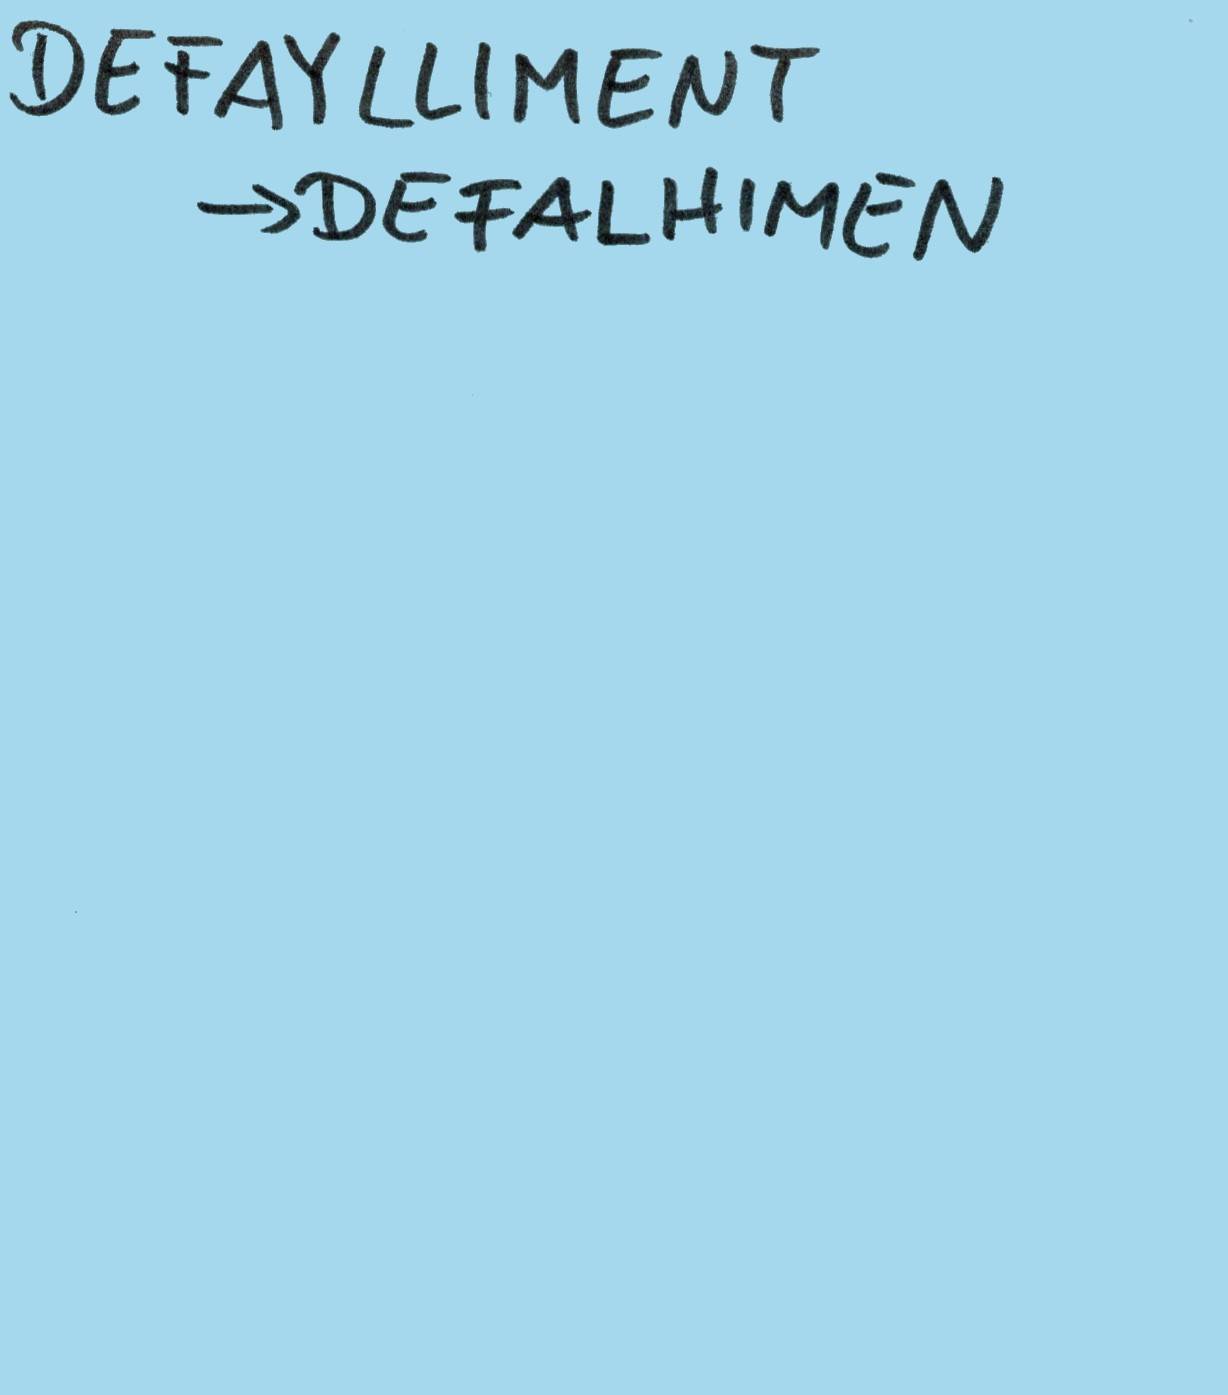 DEFAYLLIMENT
→DEFALHIMEN